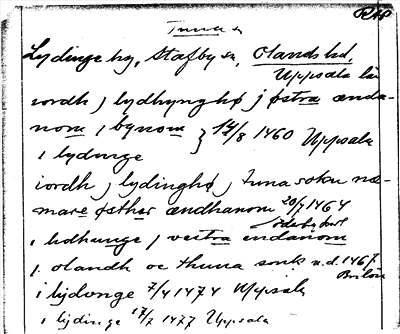 Tuna sn
Lydinge hg, Stafby sn, Olands hd,
Uppsala län
iordh j lydhynghø j østra ænda-
nom j bynom } 14/8 1460 Uppsala
i lydunge
iordh j lydinghø j tuna sokn næ-
mare østher ændhanom 20/7 1464
j lidhunge j vestra endanom
j olandh oc thuna sonk n.d. 1467
i lydonge 7/4 1474 Uppsala
i lydinge 17/7 1477 Uppsala